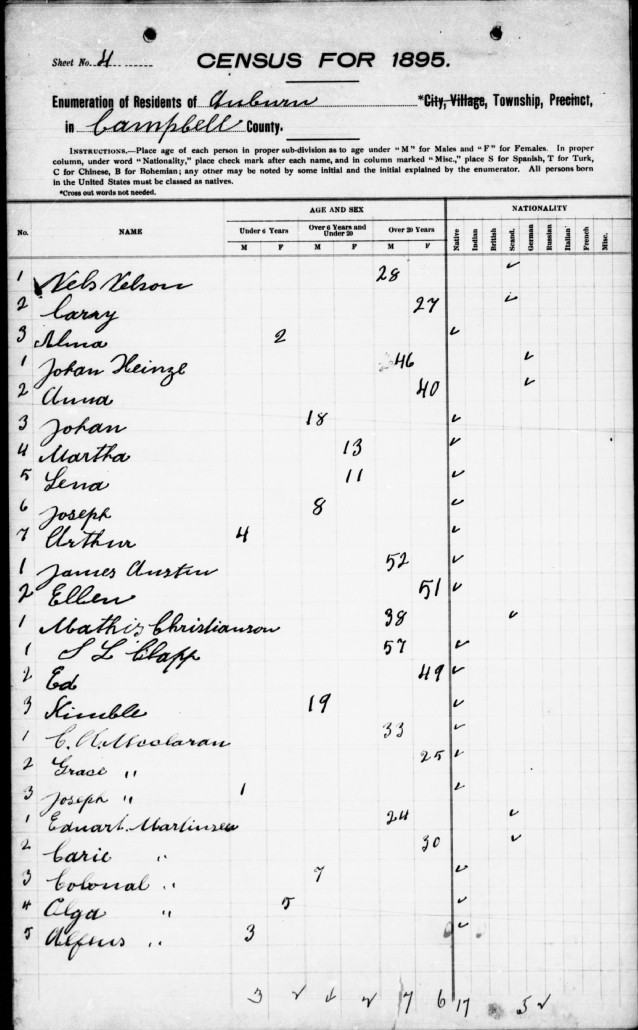 Sheet No. 4
CENSUS FOR 1895.
Enumeration of Residents of Auburn *City, Village, Township, Precinct,
in Campbell County.
INSTRUCTIONS.—Place age of each person in proper sub-division as to age under "M" for Males and "F" for Females. In proper
column, under word "Nationality," place check mark after each name, and in column marked "Misc.," place S for Spanish, T for Turk,
C for Chinese, B for Bohemian; any other may be noted by some initial and the initial explained by the enumerator. All persons born
in the United States must be classed as natives.
*Cross out words not needed.
AGE AND SEX NATIONALITY
No. NAME Under 6 Years Over 6 Years and Under 20 Over 20 Years Native Indian British Scand. German Russian Italian French Misc.
M F M F M F
1 Nels Nelson 28 ✓
2 Carry 27 ✓
3 Alma 2 ✓
1 Johan Heinze 46 ✓
2 Anna 40 ✓
3 Johan 18 ✓
4 Martha 13 ✓
5 Lena 11 ✓
6 Joseph 8 ✓
7 Arthur 4 ✓
1 James Austin 52 ✓
2 Ellen 51 ✓
1 Mathis Christianson 38 ✓
1 S L Clapp 57 ✓
2 Ed 49 ✓
3 Kimble 19 ✓
1 C. A. McClaran 33 ✓
2 Grace " 25 ✓
3 Joseph " 1 ✓
1 Eduart Martinsen 24 ✓
2 Carie " 30 ✓
3 Colonal " 7 ✓
4 Olga " 5 ✓
5 Alfens " 3 ✓
3 2 4 2 7 6 17 5 2